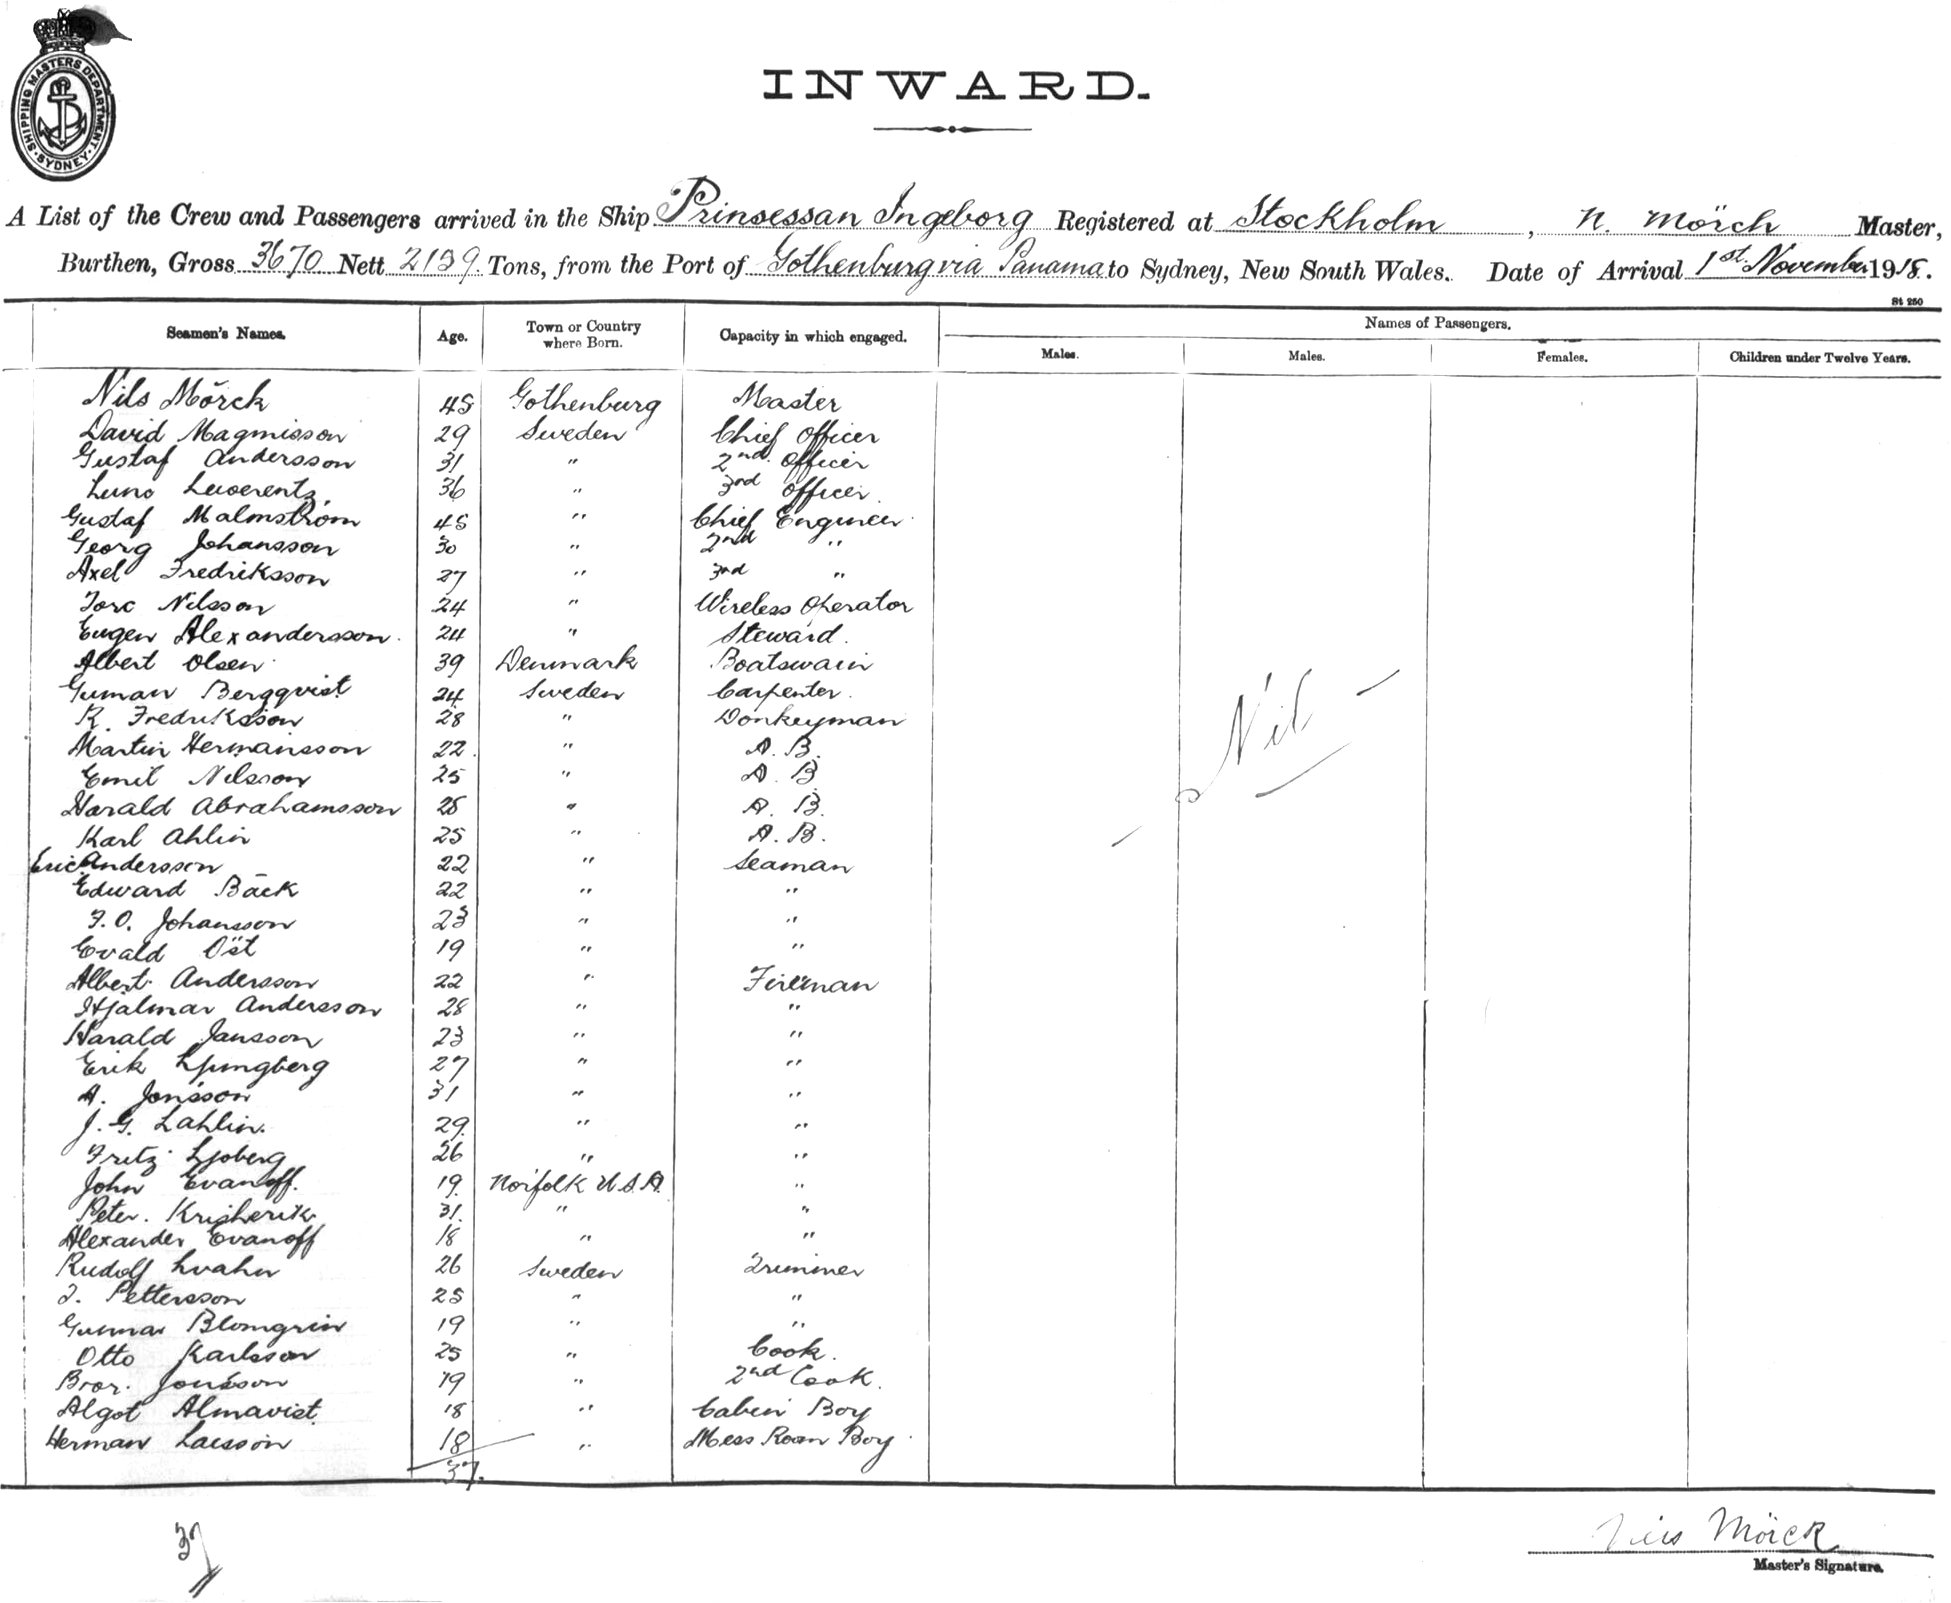 SHIPPING MASTERS DEPARTMENT · SYDNEY ·
INWARD.
A List of the Crew and Passengers arrived in the Ship Prinsessan Ingeborg Registered at Stockholm, N. Mörch Master,
Burthen, Gross 3670 Nett 2139 Tons, from the Port of Gothenburg via Panama to Sydney, New South Wales. Date of Arrival 1st November 1918.
St 250
Seamen's Names. Age. Town or Country where Born. Capacity in which engaged. Names of Passengers.
Males. Males. Females. Children under Twelve Years.
Nils Mörck 45 Gothenburg Master
David Magnusson 29 Sweden Chief Officer
Gustaf Andersson 31 " 2nd Officer
36 " 3rd Officer
Gustaf Malmström 45 " Chief Engineer
Georg Johansson 30 " 2nd "
Axel Fredriksson 27 " 3rd "
Tore Nilsson 24 " Wireless Operator
Eugen Alexandersson 24 " Steward.
Albert Olsen 39 Denmark Boatswain
Gunnar Bergqvist 24 Sweden Carpenter.
R. Fredriksson 28 " Donkeyman
Martin Hermansson 22 " A. B.
Emil Nilsson 25 " A. B.
Harald Abrahamsson 25 " A. B.
Karl Ahlin 25 " A. B.
Eric Andersson 22 " Seaman
Edward Bäck 22 " "
F. O. Johansson 23 " "
Evald Öst 19 " "
Albert Andersson 22 " Fireman
Hjalmar Andersson 28 " "
Harald Jansson 23 " "
Erik Ljungberg 27 " "
A. Jonsson 31 " "
J. G. Lahlin. 29 " "
Fritz 26 " "
John Evanoff. 19 Norfolk U.S.A. "
Peter. 31 " "
Alexander Evanoff 18 " "
Rudolf 26 Sweden Trimmer
Pettersson 25 " "
Gunnar Blomgrin 19 " "
Otto Karlsson 25 " Cook.
Bror. Jonsson 19 " 2nd Cook.
Algot Almqvist. 18 " Cabin Boy
Herman Larsson 18 " Mess Room Boy
37.
Nil
37
Nils Mörck
Master's Signature.